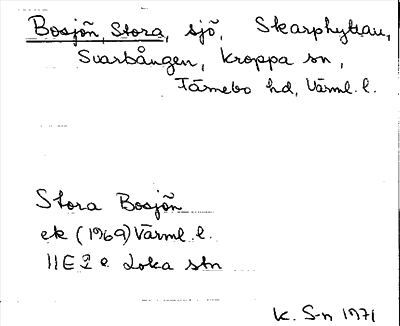 Bosjön, Stora, sjö, Skarphyttan,
Svartången, Kroppa sn,
Färnebo hd, Värml. l.
Stora Bosjön
ek (1969) Värml. l.
11E 2 e Loka stn
K. S-n 1971